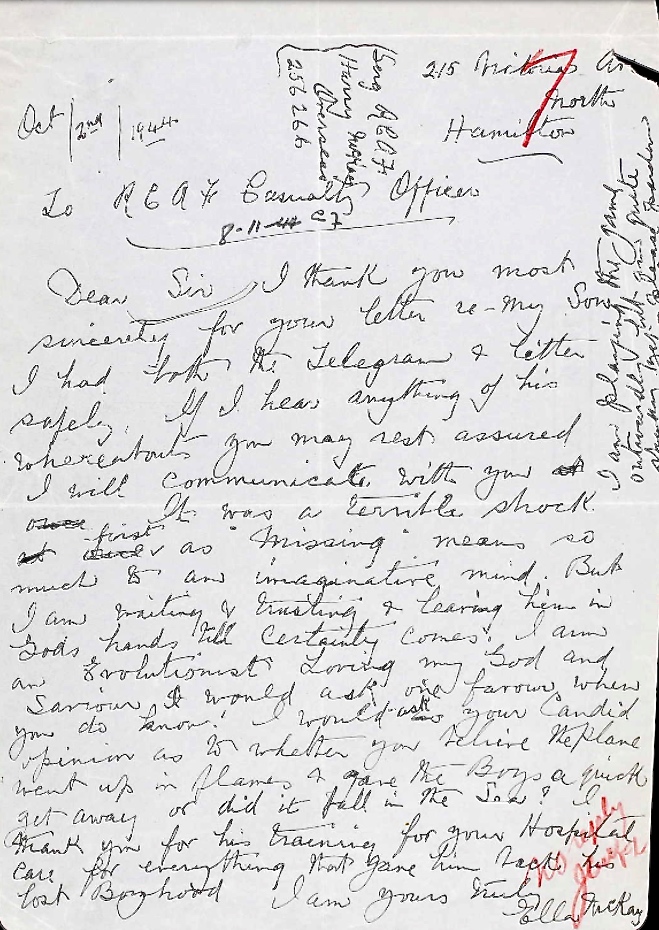 215 Victoria Av.
North
Hamilton
7
Oct 2nd 1944
Serg RCAF
Harry McKay
Overseas
256266
To RCAF Casualty Officer
8-11-44
Dear Sir, I thank you most
sincerely for your letter re-my Son
I had both the Telegram & letter
safely. If I hear anything of his
whereabouts you may rest assured
I will communicate with you at
once It was a terrible shock.
at first as "Missing" means so
much to an imaginative mind. But
I am waiting & trusting & leaving him in
Gods hands till Certainty comes. I am
an Evolutionist Loving my God and
Saviour I would ask one favour when
you do know! I would ask your Candid
opinion as to whether you believe the Plane
went up in flames & gave the Boys a quick
get away or did it fall in the Sea? I
thank you for his training for your Hospital
care for everything that gave him back his
lost Boyhood I am yours truly
Ella McKay
I am playing the game
outwardly but
No reply